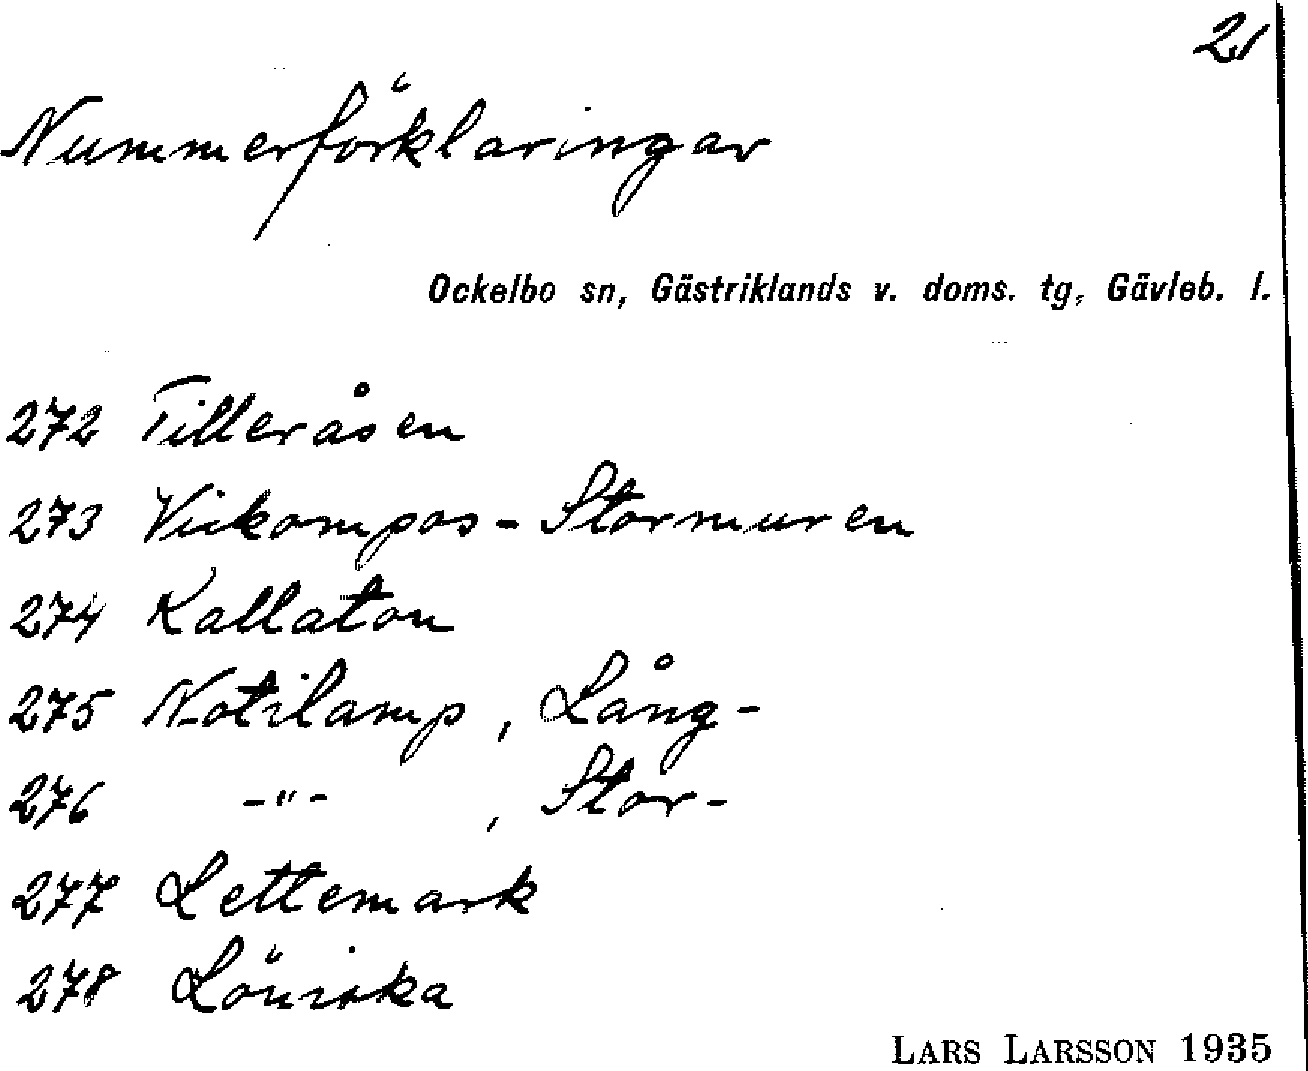 21
Nummerförklaringar
Ockelbo sn, Gästriklands v. doms. tg, Gävleb. l.
272 Tilleråsen
273 Viikompos-Stormuren
274 Kallaton
275 Notilamp, Lång-
276 -"- , Stor-
277 Lettemark
278 Löniska
LARS LARSSON 1935